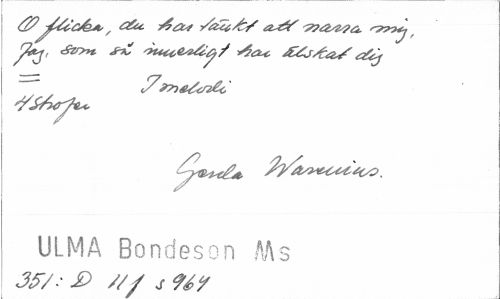 O flicka, du har tänkt att narra mig,
Jag, som så innerligt har älskat dig
=
4 strofer 1 melodi
Gerda Warenius.
ULMA Bondeson Ms
351: D II f s 964